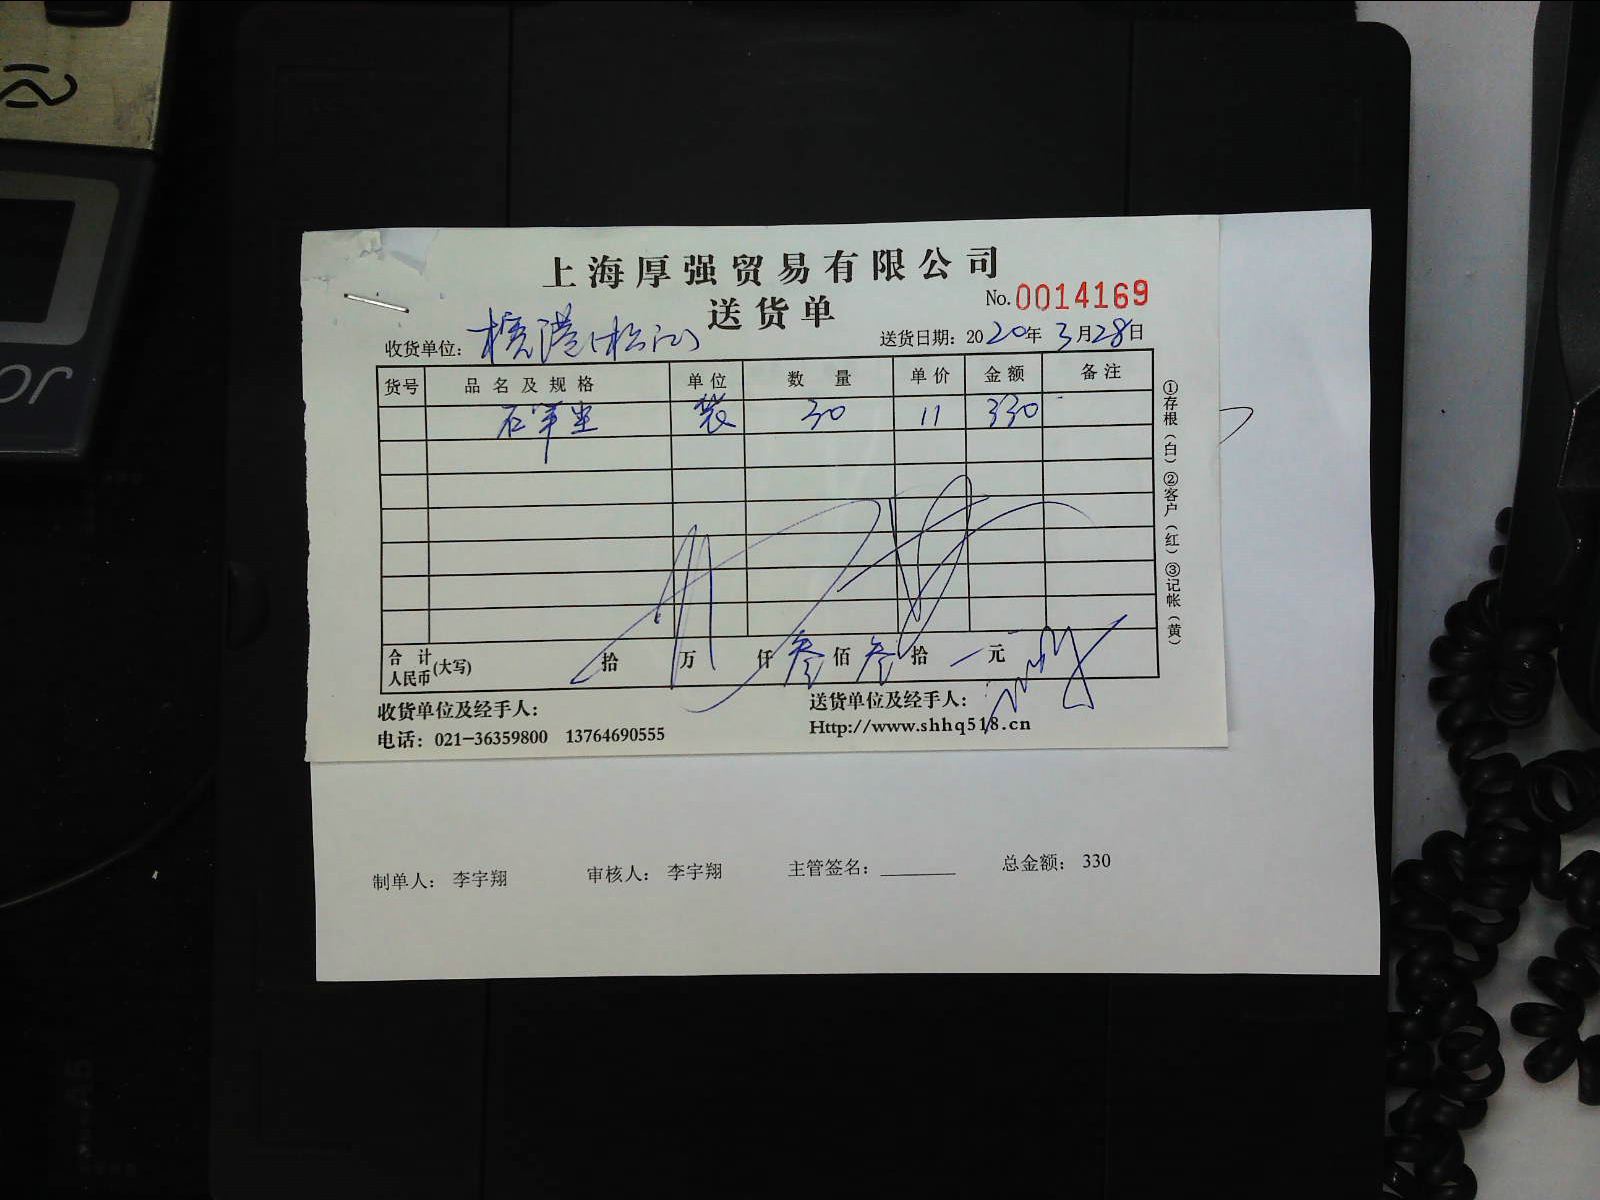 上海厚强贸易有限公司
送货单
No.0014169
收货单位：
送货日期：2020年3月28日
货号 品名及规格 单位 数量 单价 金额 备注
30 11 330
合计人民币(大写) 拾 万 仟 叁 佰 叁 拾 元
收货单位及经手人：
送货单位及经手人：
电话：021-36359800 13764690555
Http://www.shhq518.cn
①存根（白）②客户（红）③记帐（黄）
制单人： 李宇翔 审核人： 李宇翔 主管签名：________ 总金额： 330